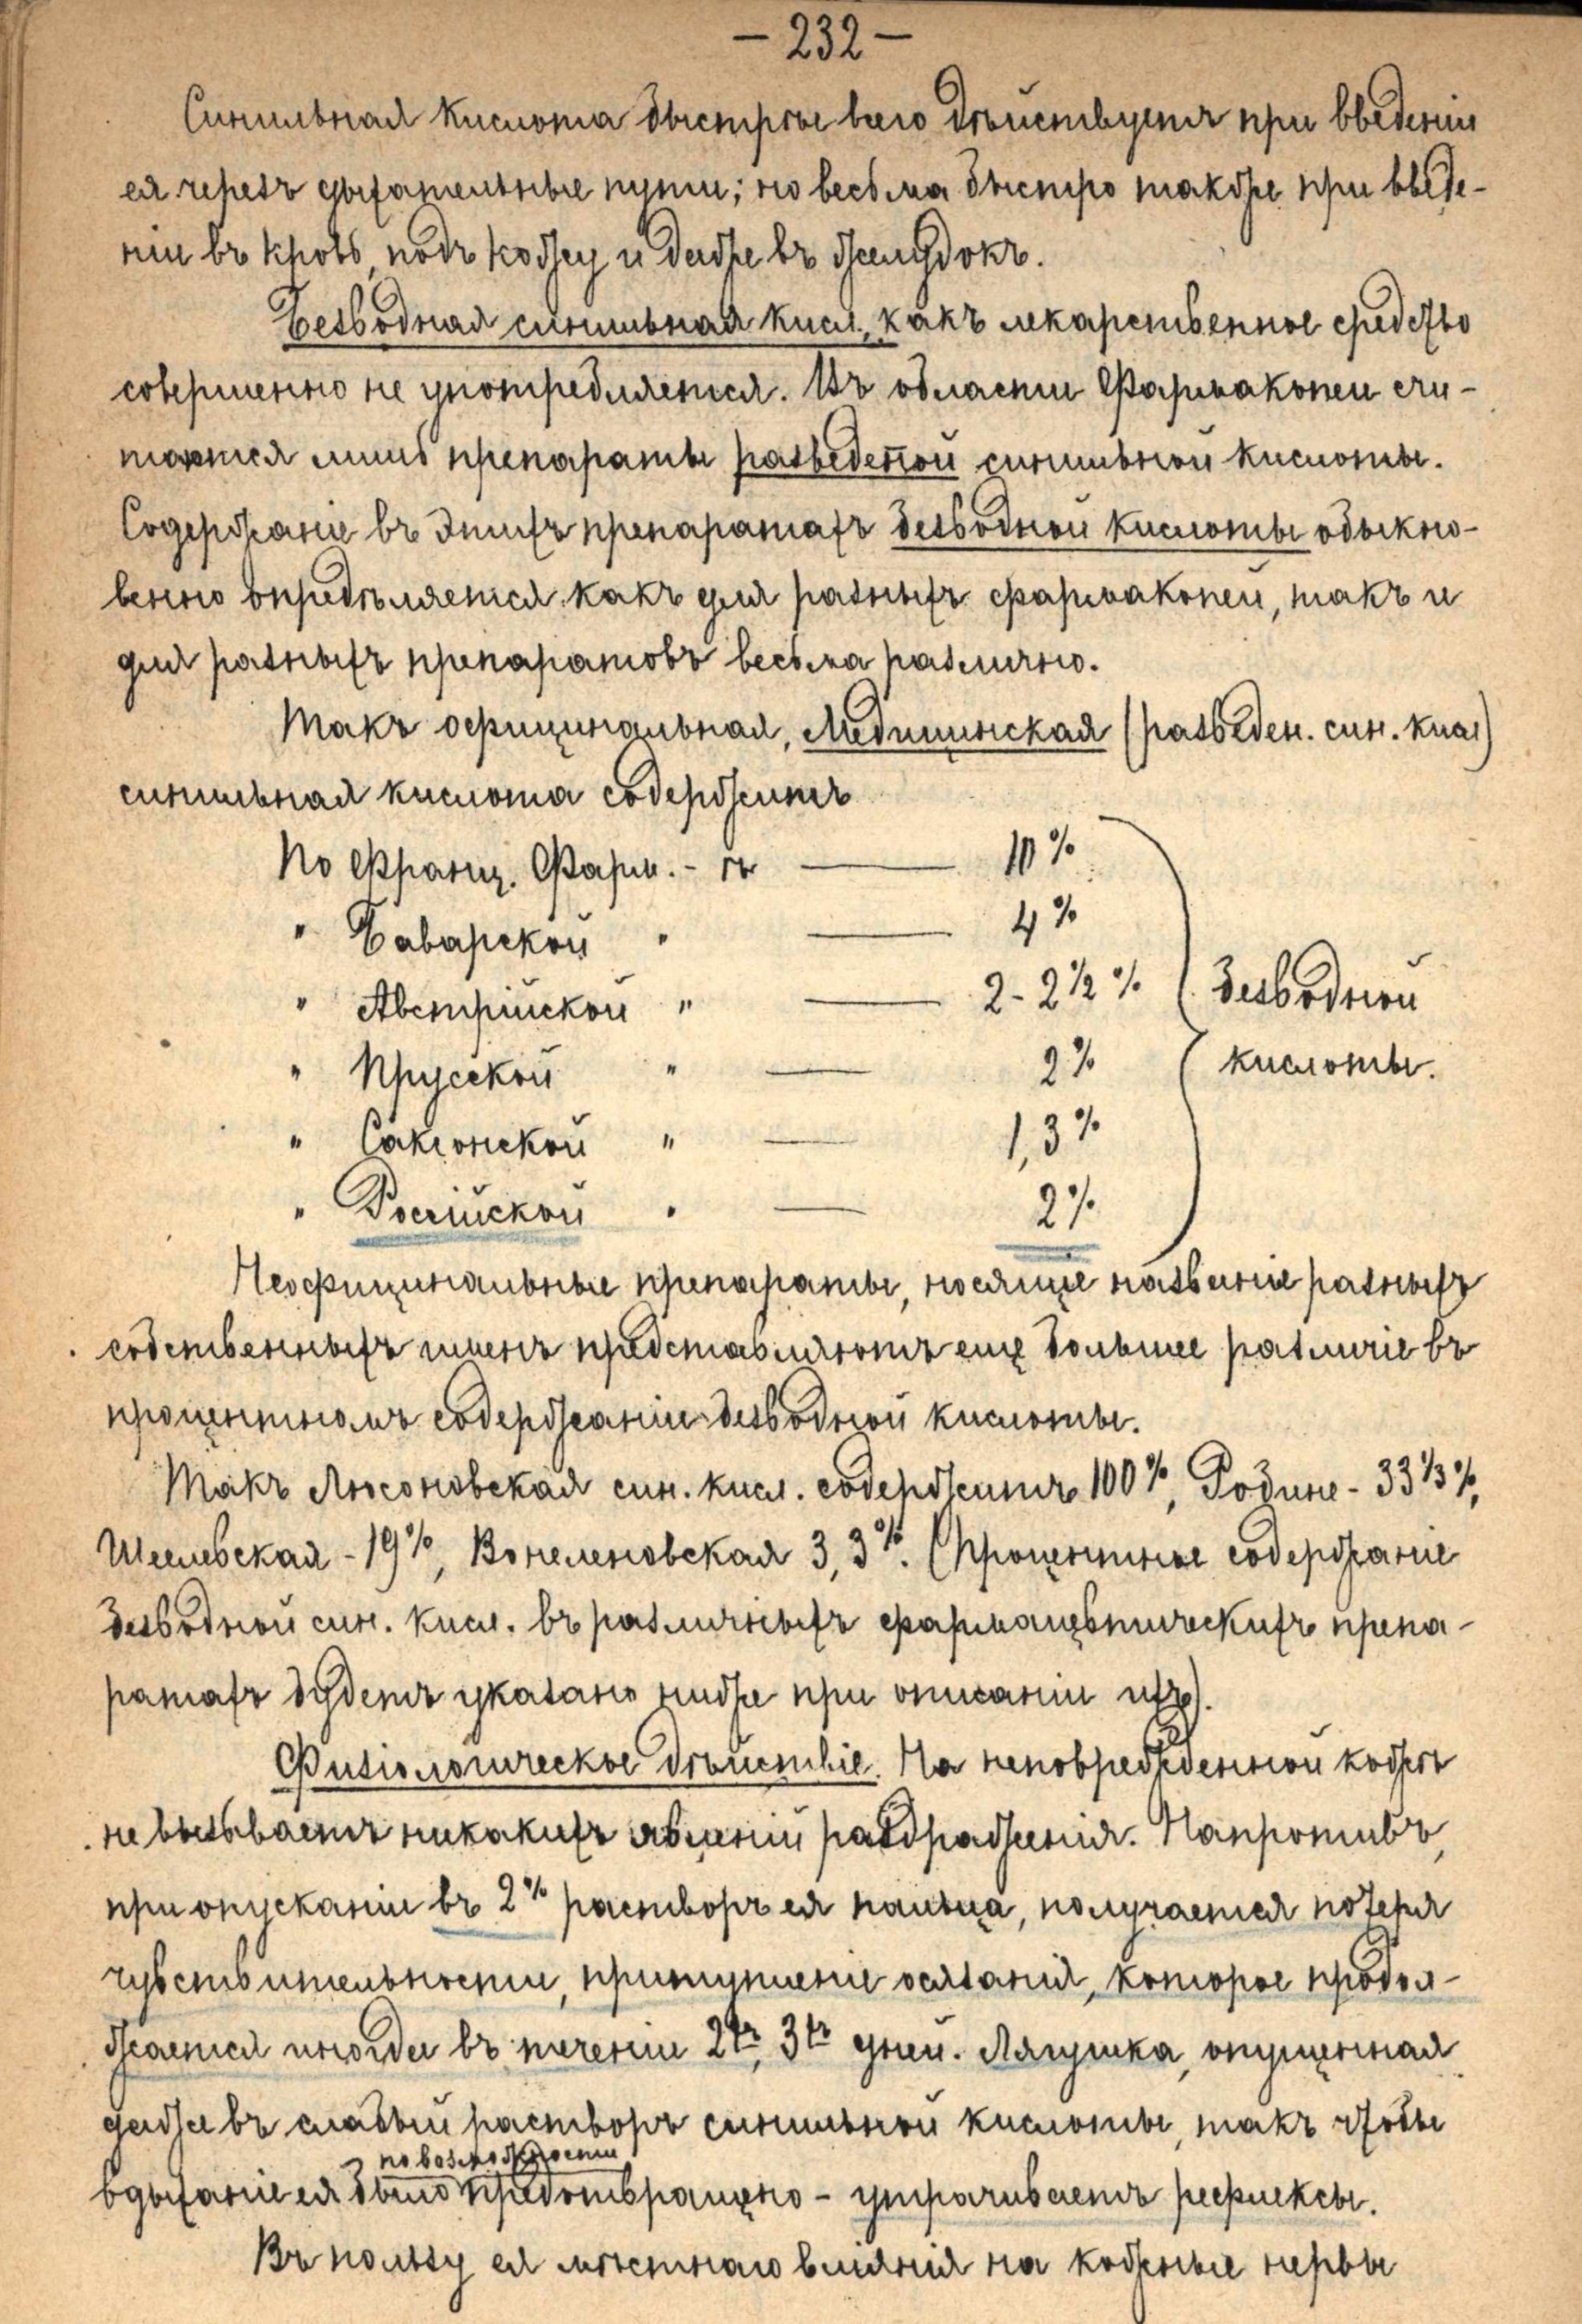 — 232 —
Синильная кислота быстрѣе всего дѣйствуетъ при введеніи
ея черезъ дыхательные пути; но весьма быстро также при введе-
ніи въ кровь, подъ кожу и даже въ желудокъ.
Безводная синильная кисл., какъ лекарственное средство
совершенно не употребляется. Въ области Фармакопеи счи-
таются лишь препараты разведеной синильной кислоты.
Содержаніе въ этихъ препаратахъ безводной кислоты обыкно-
венно опредѣляется какъ для разныхъ фармакопей, такъ и
для разныхъ препаратовъ весьма различно.
Такъ официнальная, Медицинская (разведен. син. кисл)
синильная кислота содержитъ
По Франц. Фарм.-ѣ — 10%
" Баварской " — 4%
" Австрійской " — 2-2½% безводной
" Прусской " — 2% кислоты.
" Саксонской " — 1,3%
" Россійской " — 2%
Неофицинальные препараты, носящіе названіе разныхъ
собственныхъ именъ представляютъ еще большее различіе въ
процентномъ содержаніи безводной кислоты.
Такъ Люсоновская син. кисл. содержитъ 100%, Робине - 33⅓%,
Шеелевская - 19%, Вокеленовская 3,3%. (Процентное содержаніе
безводной син. кисл. въ различныхъ фармацевтическихъ препа-
ратахъ будетъ указано ниже при описаніи ихъ).
Физіологическое дѣйствіе. На неповрежденной кожѣ
не вызываетъ никакихъ явленій раздраженія. Напротивъ,
при опусканіи въ 2% растворъ ея пальца, получается потеря
чувствительности, притупленіе осязанія, которое продол-
жается иногда въ теченіи 2хъ, 3хъ дней. Лягушка, опущенная
даже въ слабый растворъ синильной кислоты, такъ чтобы
по возможности
вдыханіе ея было предотвращено - утрачиваетъ рефлексы.
Въ пользу ея мѣстнаго вліянія на кожные нервы